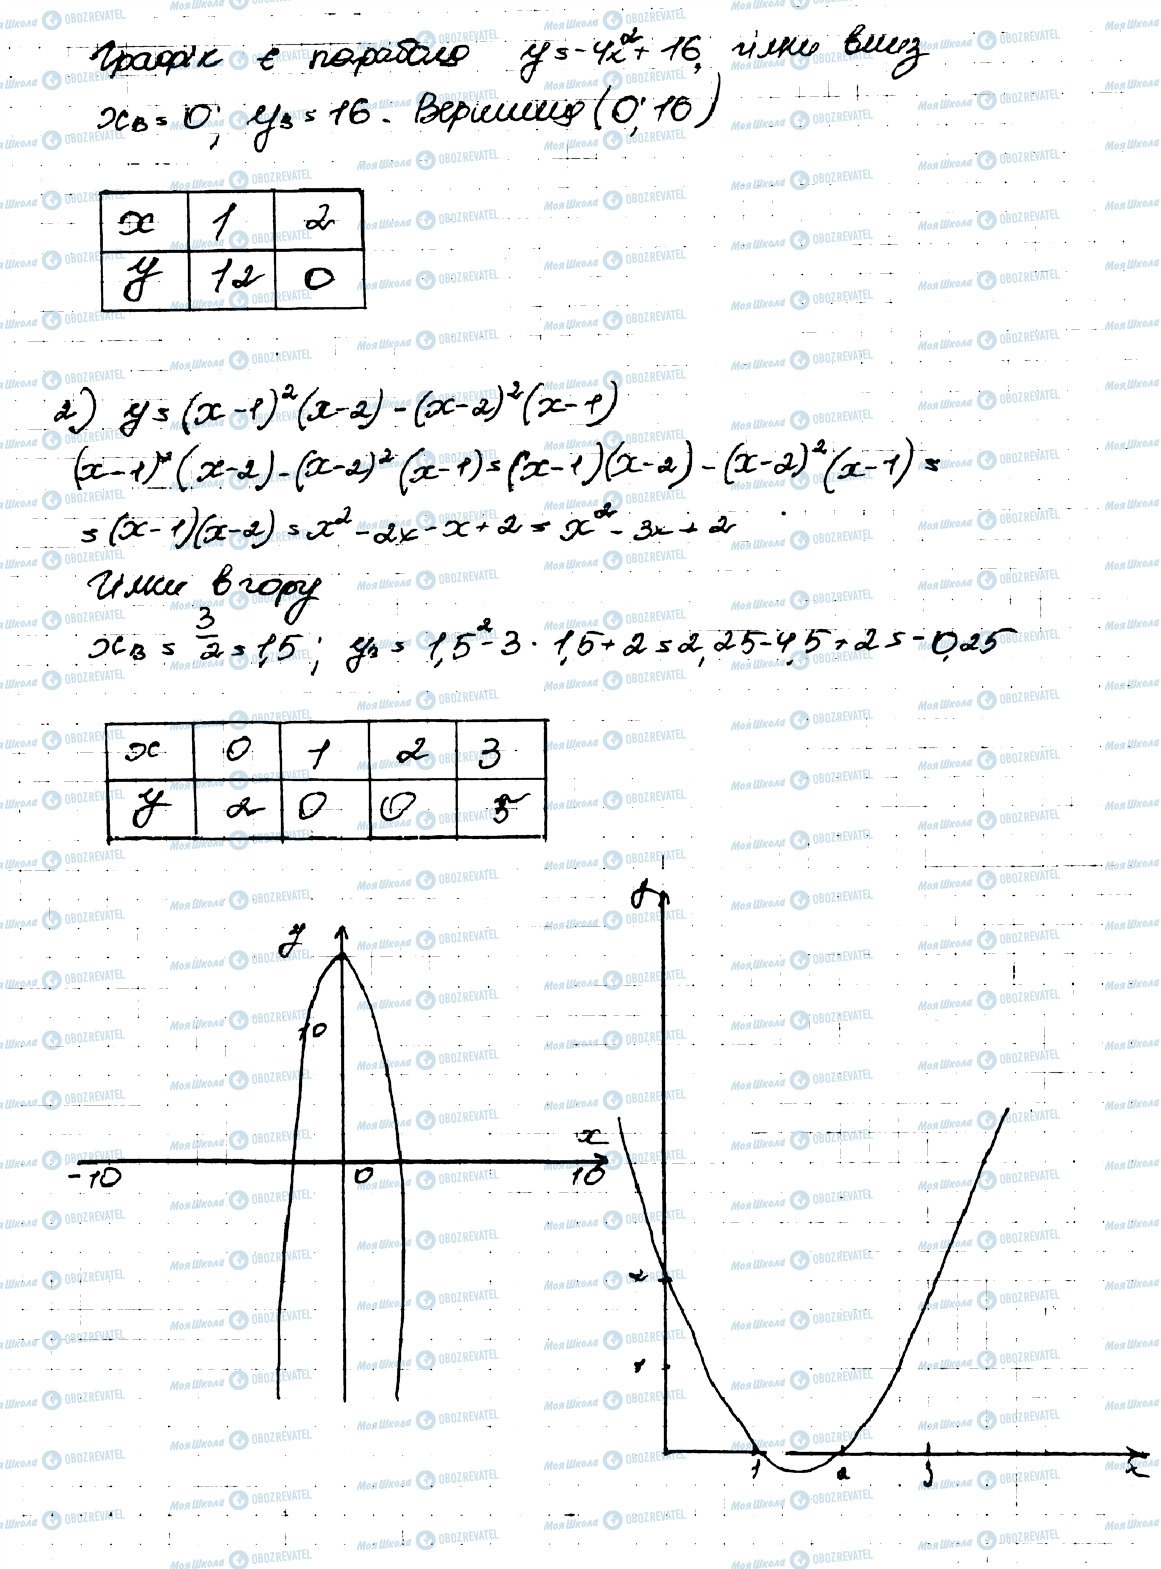 Графік є парабола y = -4x² + 16, гілки вниз
xв = 0; yв = 16. Вершина (0; 16)
x 1 2
y 12 0
2) y = (x-1)²(x-2) - (x-2)²(x-1)
(x-1)²(x-2) - (x-2)²(x-1) = (x-1)(x-2) - (x-2)²(x-1) =
= (x-1)(x-2) = x² - 2x - x + 2 = x² - 3x + 2
Гілки вгору
xв = 3/2 = 1,5; yв = 1,5² - 3 · 1,5 + 2 = 2,25 - 4,5 + 2 = -0,25
x 0 1 2 3
y 2 0 0
y
10
x
-10 0 10
y
2
1
1 2 3 x
МояШкола OBOZREVATEL